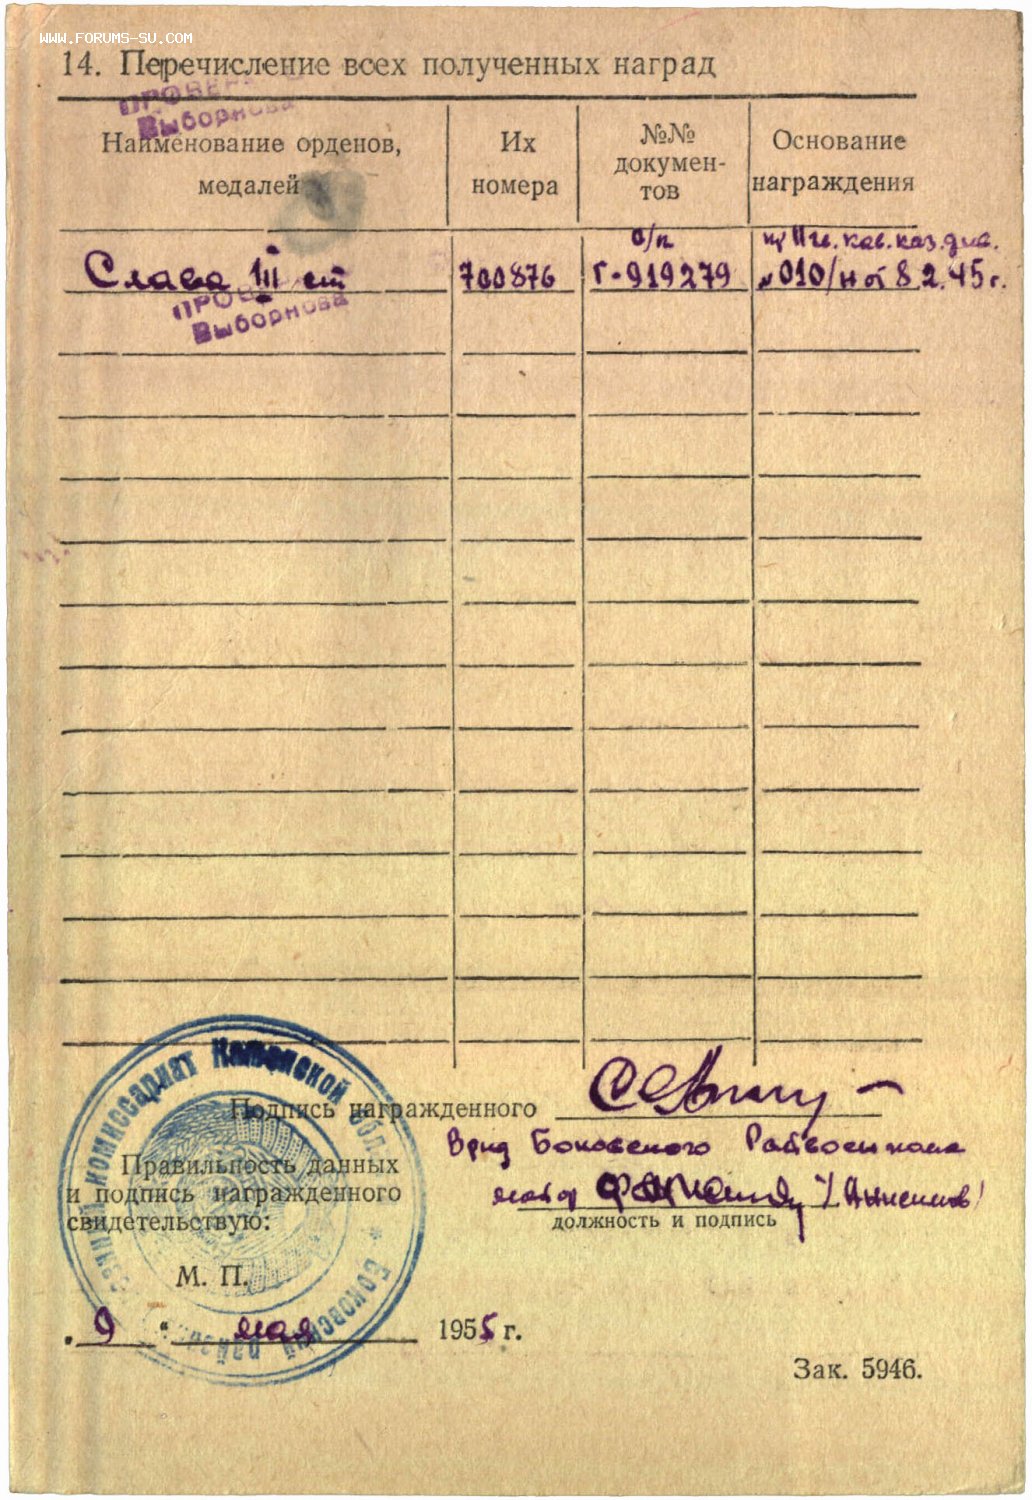 WWW.FORUMS-SU.COM
14. Перечисление всех полученных наград
Выборнова
Наименование орденов, медалей
Их номера
№№ документов
Основание награждения
о/п
Слава III ст
700876
Г-919279
пр 11 гв. кав. каз. див.
№010/н от 8.2.45г.
ПРОВЕ
Выборнова
Подпись награжденного
Врид Боковского Райвоенкома
Правильность данных
и подпись награжденного
свидетельствую:
майор
должность и подпись
М. П.
"9" мая 1955 г.
Зак. 5946.
комиссариат Каменской обл. * Боковский